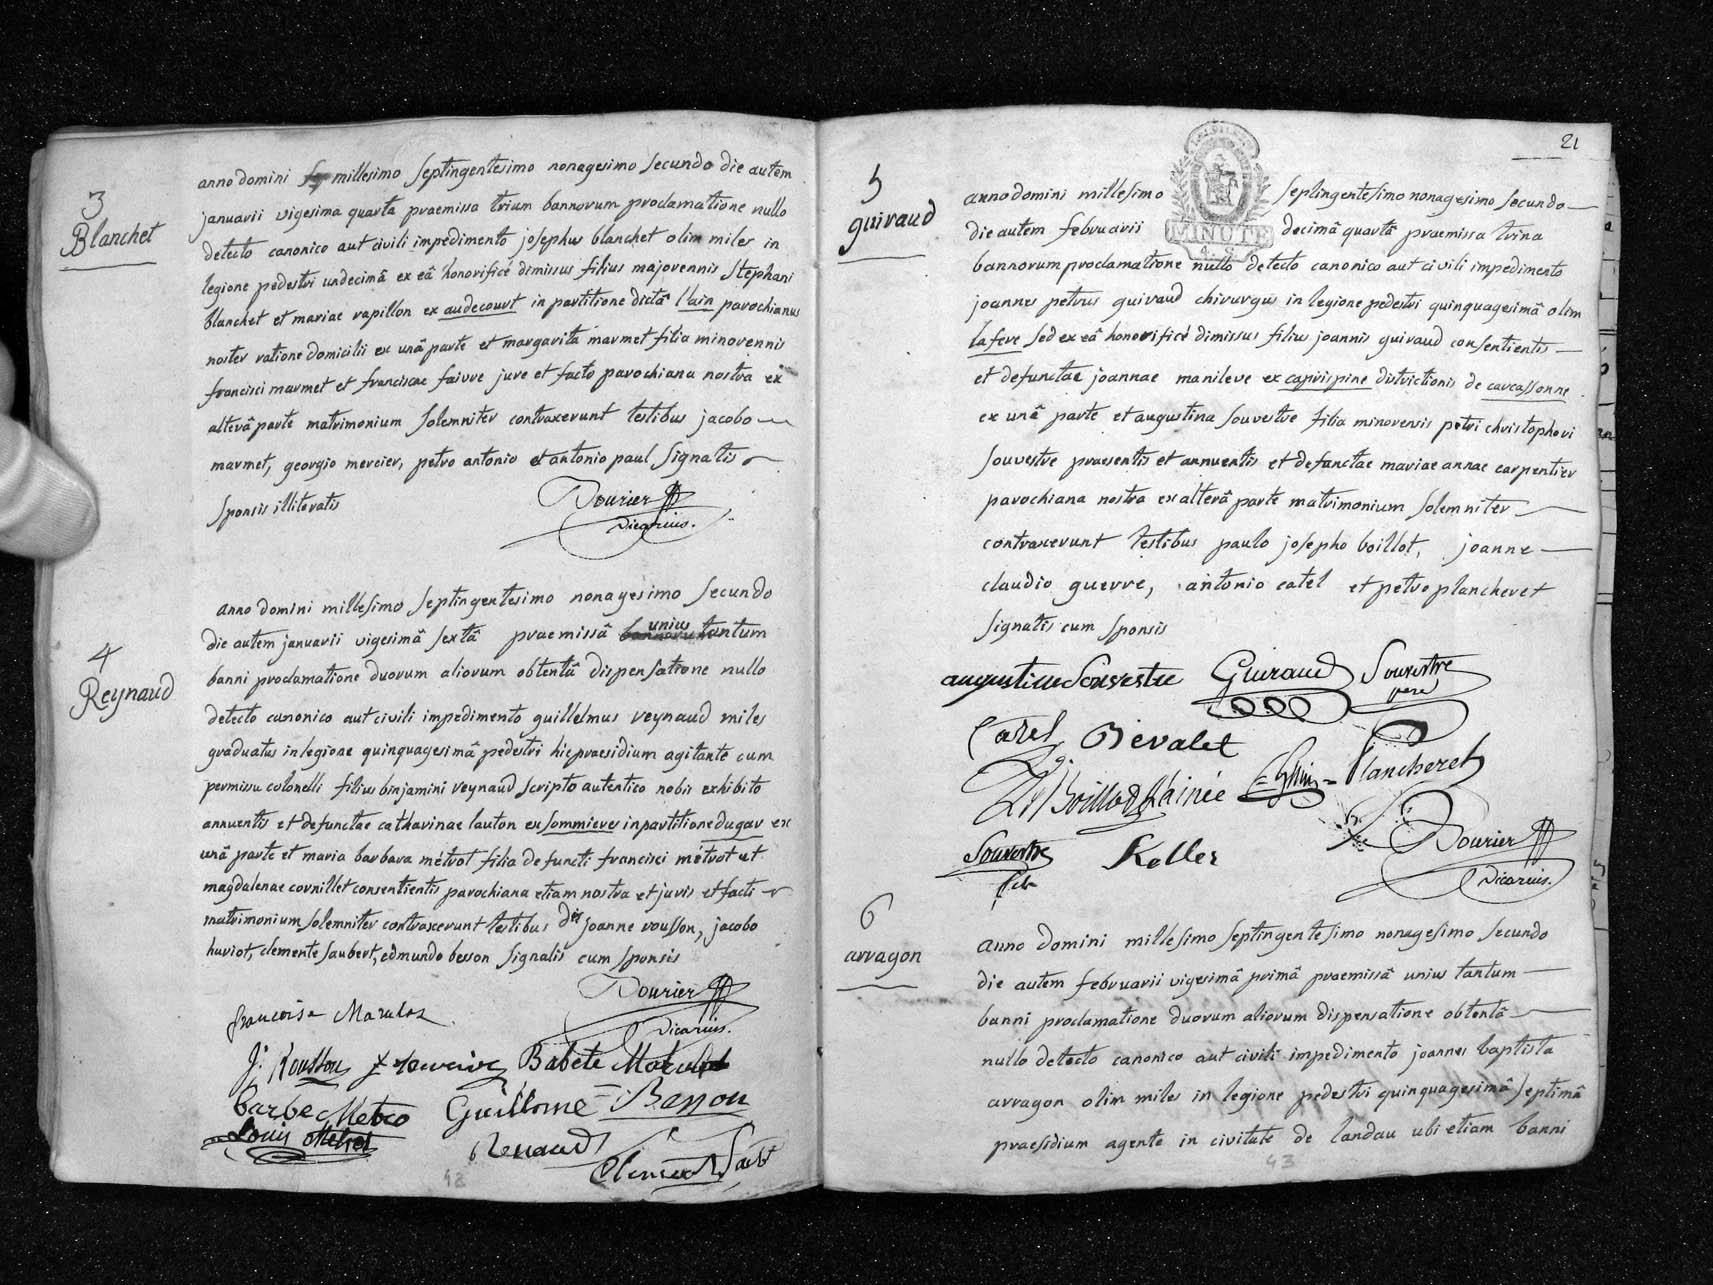 3
Blanchet
anno domini millesimo septingentesimo nonagesimo secundo die autem
januarii vigesima quarta praemissa trium bannorum proclamatione nullo
detecto canonico aut civili impedimento josephus blanchet olim miles in
legione pedestri undecimâ ex eâ honorificé dimissus filius majorennis Stephani
blanchet et mariae rapillon ex audecourt in partitione dictâ l'ain parochianus
noster ratione domicilii ex unâ parte et margarita marmet filia minorennis
francisci marmet et franciscae faivre jure et facto parochiana nostra ex
alterâ parte matrimonium solemniter contraxerunt testibus jacobo
marmet, georgio mercier, petro antonio et antonio paul signatis
sponsis illiteratis
Dourier
vicarius.
4
Reynaud
anno domini millesimo septingentesimo nonagesimo secundo
die autem januarii vigesimâ sextâ praemissâ unius tantum
banni proclamatione duorum aliorum obtentâ dispensatione nullo
detecto canonico aut civili impedimento guillelmus reynaud miles
graduatus in legione quinquagesimâ pedestri hic praesidium agitante cum
permissu colonelli filius binjamini reynaud scripto autentico nobis exhibito
annuentis et defunctae catharinae lauton ex sommieres in partitione du gar ex
unâ parte et maria barbara métrot filia defuncti francisci métrot et
magdalenae cornillet consentientis parochiana etiam nostra et juris et facti
matrimonium solemniter contraxerunt testibus dis joanne rousson, jacobo
huriot, clemente saubert, edmundo besson signatis cum sponsis
Dourier
vicarius.
francoise Marulaz
J. Rousson Babete
barbe Metro Guillome Besson
Louis Metrot
Renaud
Clement
43
21
5
guiraud
MINUTE
anno domini millesimo septingentesimo nonagesimo secundo
die autem februarii decimâ quartâ praemissa trina
bannorum proclamatione nullo detecto canonico aut civili impedimento
joannes petrus guiraud chirurgus in legione pedestri quinquagesimâ olim
lafere sed ex eâ honorificé dimissus filius joannis guiraud consentientis
et defunctae joannae manileve ex caprispine districtionis de carcassonne
ex unâ parte et augustina souvestre filia minorensis petri christophori
souvestre praesentis et annuentis et defunctae mariae annae carpentier
parochiana nostra ex alterâ parte matrimonium solemniter
contraxerunt testibus paulo josepho boillot, joanne
claudio guerre, antonio catel et petro plancheret
signatis cum sponsis
augustine Souvestre Guiraud Souvestre
pere
Catel Bévalet
Boillot Lainée Plancheret
Souvestre Keller
fils
Dourier
vicarius.
6
arragon
anno domini millesimo septingentesimo nonagesimo secundo
die autem februarii vigesimâ primâ praemissâ unius tantum
banni proclamatione duorum aliorum dispensatione obtentâ
nullo detecto canonico aut civili impedimento joannes baptista
arragon olim miles in legione pedestri quinquagesimâ septimâ
praesidium agente in civitate de landau ubi etiam banni
43